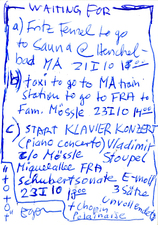 WAITING FOR
a) Fritz Fenzl to go
to Sauna @ Herschel-
bad MA 21 I 10 18:00
b) taxi to go to MA train
station to go to FRA to
Fam. Mössle 23 I 10 14:00
c) START KLAVIER KONZERT
(piano concerto) Vladimir
c/o Mössle Stoupel
Miquelallee FRA
Schubertsonate E-moll
23 I 10 3 Sätze
18:00 Unvollendet
+ Chopin
Polonaise